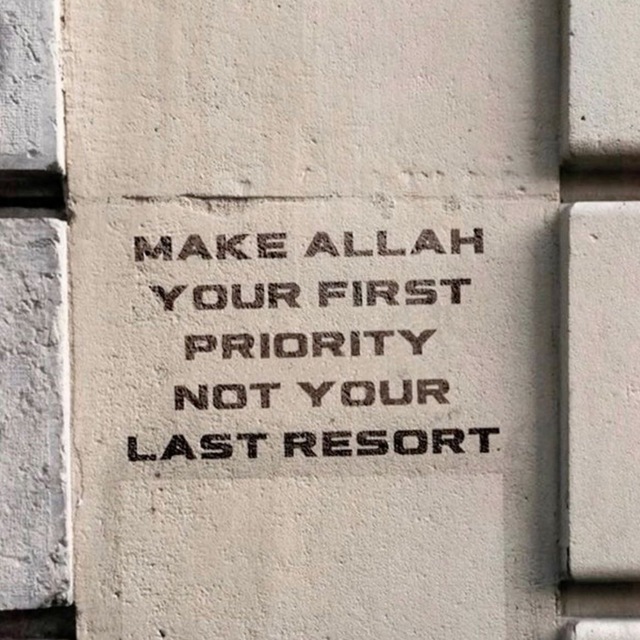 MAKE ALLAH
YOUR FIRST
PRIORITY
NOT YOUR
LAST RESORT